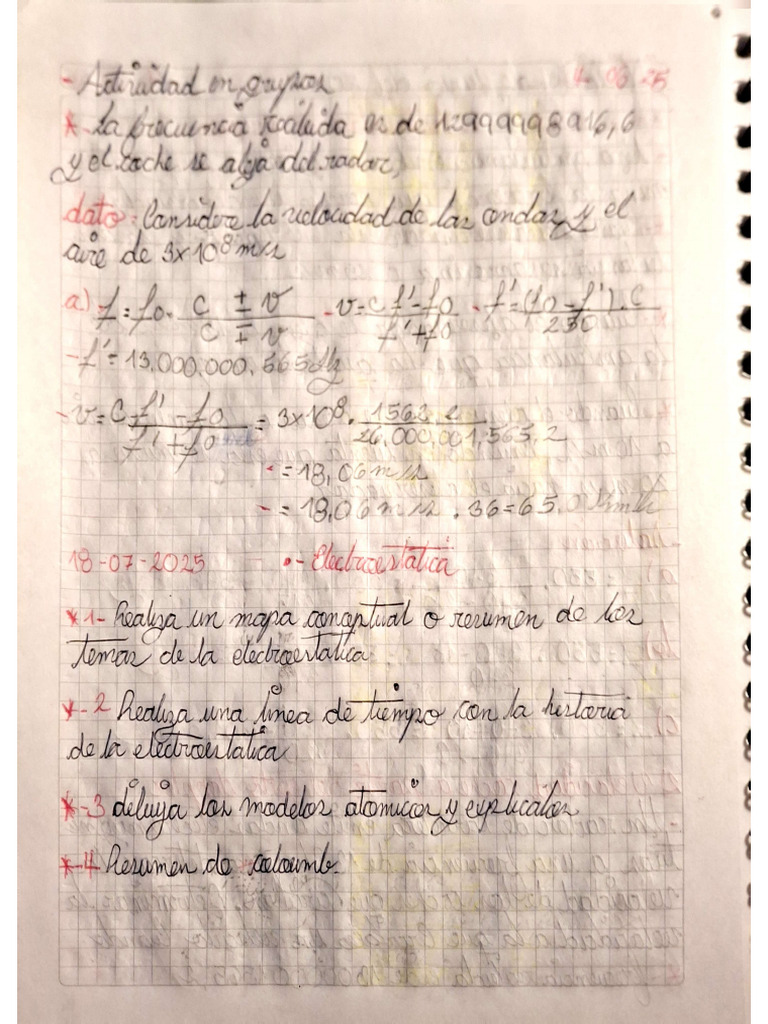 - Actividad en grupos 4-06-25
* La frecuencia recibida es de 12999998916,6
y el coche se aleja del radar,
dato: Considere la velocidad de las ondas y el
aire de 3x10⁸ m/s
a) f = fo · C ± v / C ∓ v - v = c f' - fo / f' + fo - f' = (fo - f') · C / 230
- f' = 13.000.000.565 Hz
- v = C f' - fo / f' + fo = 3x10⁸ · 1562.2 / 26.000.001.563,2
- = 18,06 m/s
- = 18,06 m/s . 36 = 65.0 Km/h
18-07-2025 •- Electroestática
*1- Realiza un mapa conceptual o resumen de los
temas de la electroestatica
*-2 Realiza una linea de tiempo con la historia
de la electroestatica
*-3 dibuja los modelos atomicos y explicalos
*-4 Resumen de coloumb.